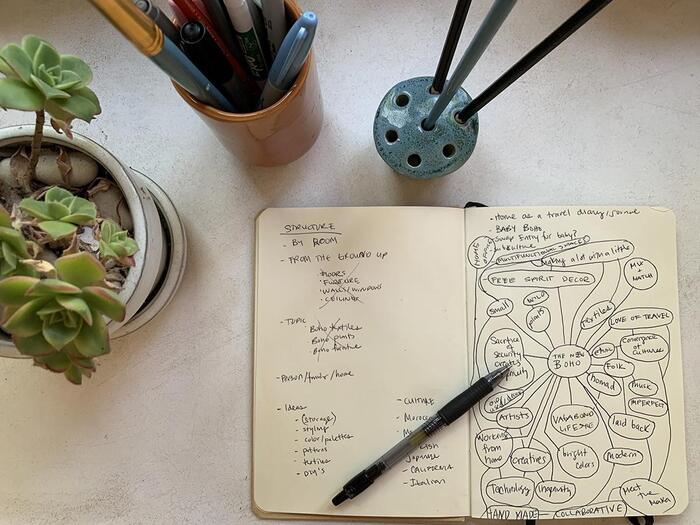 STRUCTURE
- BY ROOM
- FROM THE GROUND UP
· FLOORS
· FURNITURE
· WALLS/WINDOWS
· CEILINGS
- TOPIC
· Boho textiles
· Boho plants
· Boho furniture
- Person/family/home
- Ideas
- (storage)
- styling
- color/palettes
- patterns
- textiles
- DIY's
- CULTURE
- Japanese
- CALIFORNIA
- Home as a travel diary/
- BABY BOHO
Swap Entry for baby?
MULTIFUNCTIONAL SPACES
a lot from a little
- FREE SPIRIT DECOR
MIX + MATCH
small
WILD
plants
textiles
LOVE OF TRAVEL
Sacrifice of security creates
THE NEW BOHO
ethnic
Convergence of cultures
FOLK
nomad
music
IMPERFECT
ARTISTS
VAGABOND LIFE
laid back
Working from home
creatives
bright colors
modern
Technology
Ingenuity
Meet the Maker
HAND MADE
COLLABORATIVE